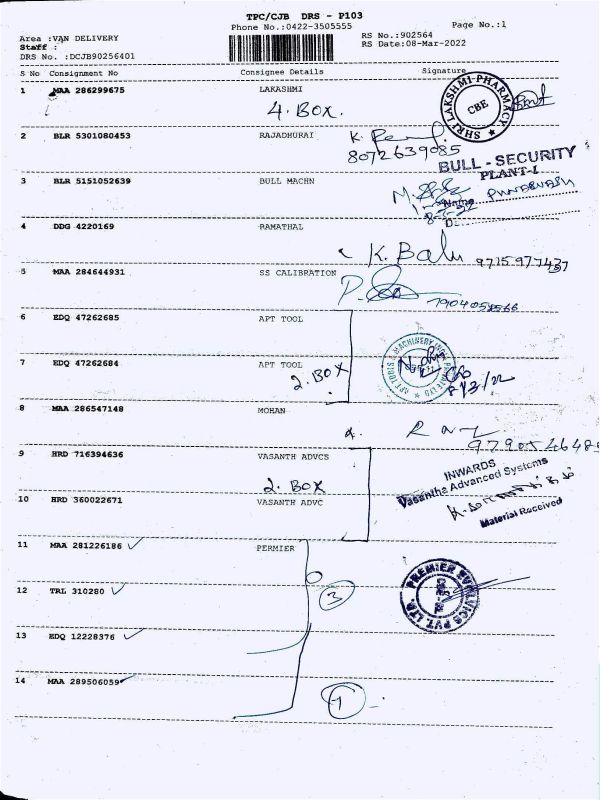 TPC/CJB DRS - P103
Phone No.:0422-3505555
Page No.:1
Area :VAN DELIVERY
RS No.:902564
Staff :
RS Date:08-Mar-2022
DRS No. :DCJB90256401
S No Consignment No Consignee Details Signature
1 MAA 286299675 LAKASHMI
4. BOX.
SHRI LAKSHMI PHARMACY
CBE
2 BLR 5301080453 RAJADHURAI
8072639085
BULL - SECURITY
PLANT-I
3 BLR 5151052639 BULL MACHN
Name
4 DDG 4220169 RAMATHAL
K. Balu 9715977437
5 MAA 284644931 SS CALIBRATION
6 EDQ 47262685 APT TOOL
7 EDQ 47262684 APT TOOL
2. BOX
8/3/22
8 MAA 286547148 MOHAN
9 HRD 716394636 VASANTH ADVCS
2. BOX
INWARDS
Vasantha Advanced Systems
Material Received
10 HRD 360022671 VASANTH ADVC
11 MAA 281226186 PERMIER
12 TRL 310280
3
13 EDQ 12228376
14 MAA 289506059